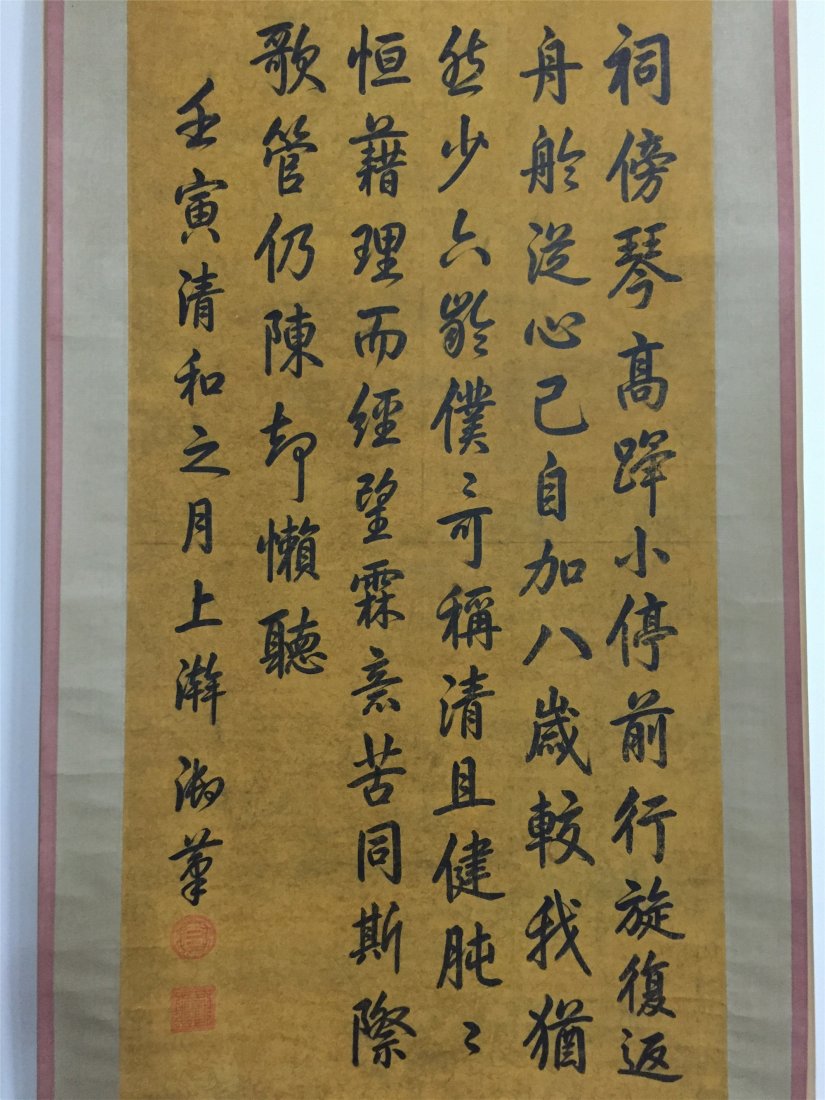 祠傍琴高蹕小停前行旋復返
舟舲從心已自加八歲較我猶
然少六齡僕〻可稱清且健肫〻
恒藉理而經望霖意苦同斯際
歌管仍陳却懶聽
壬寅清和之月上澣御筆